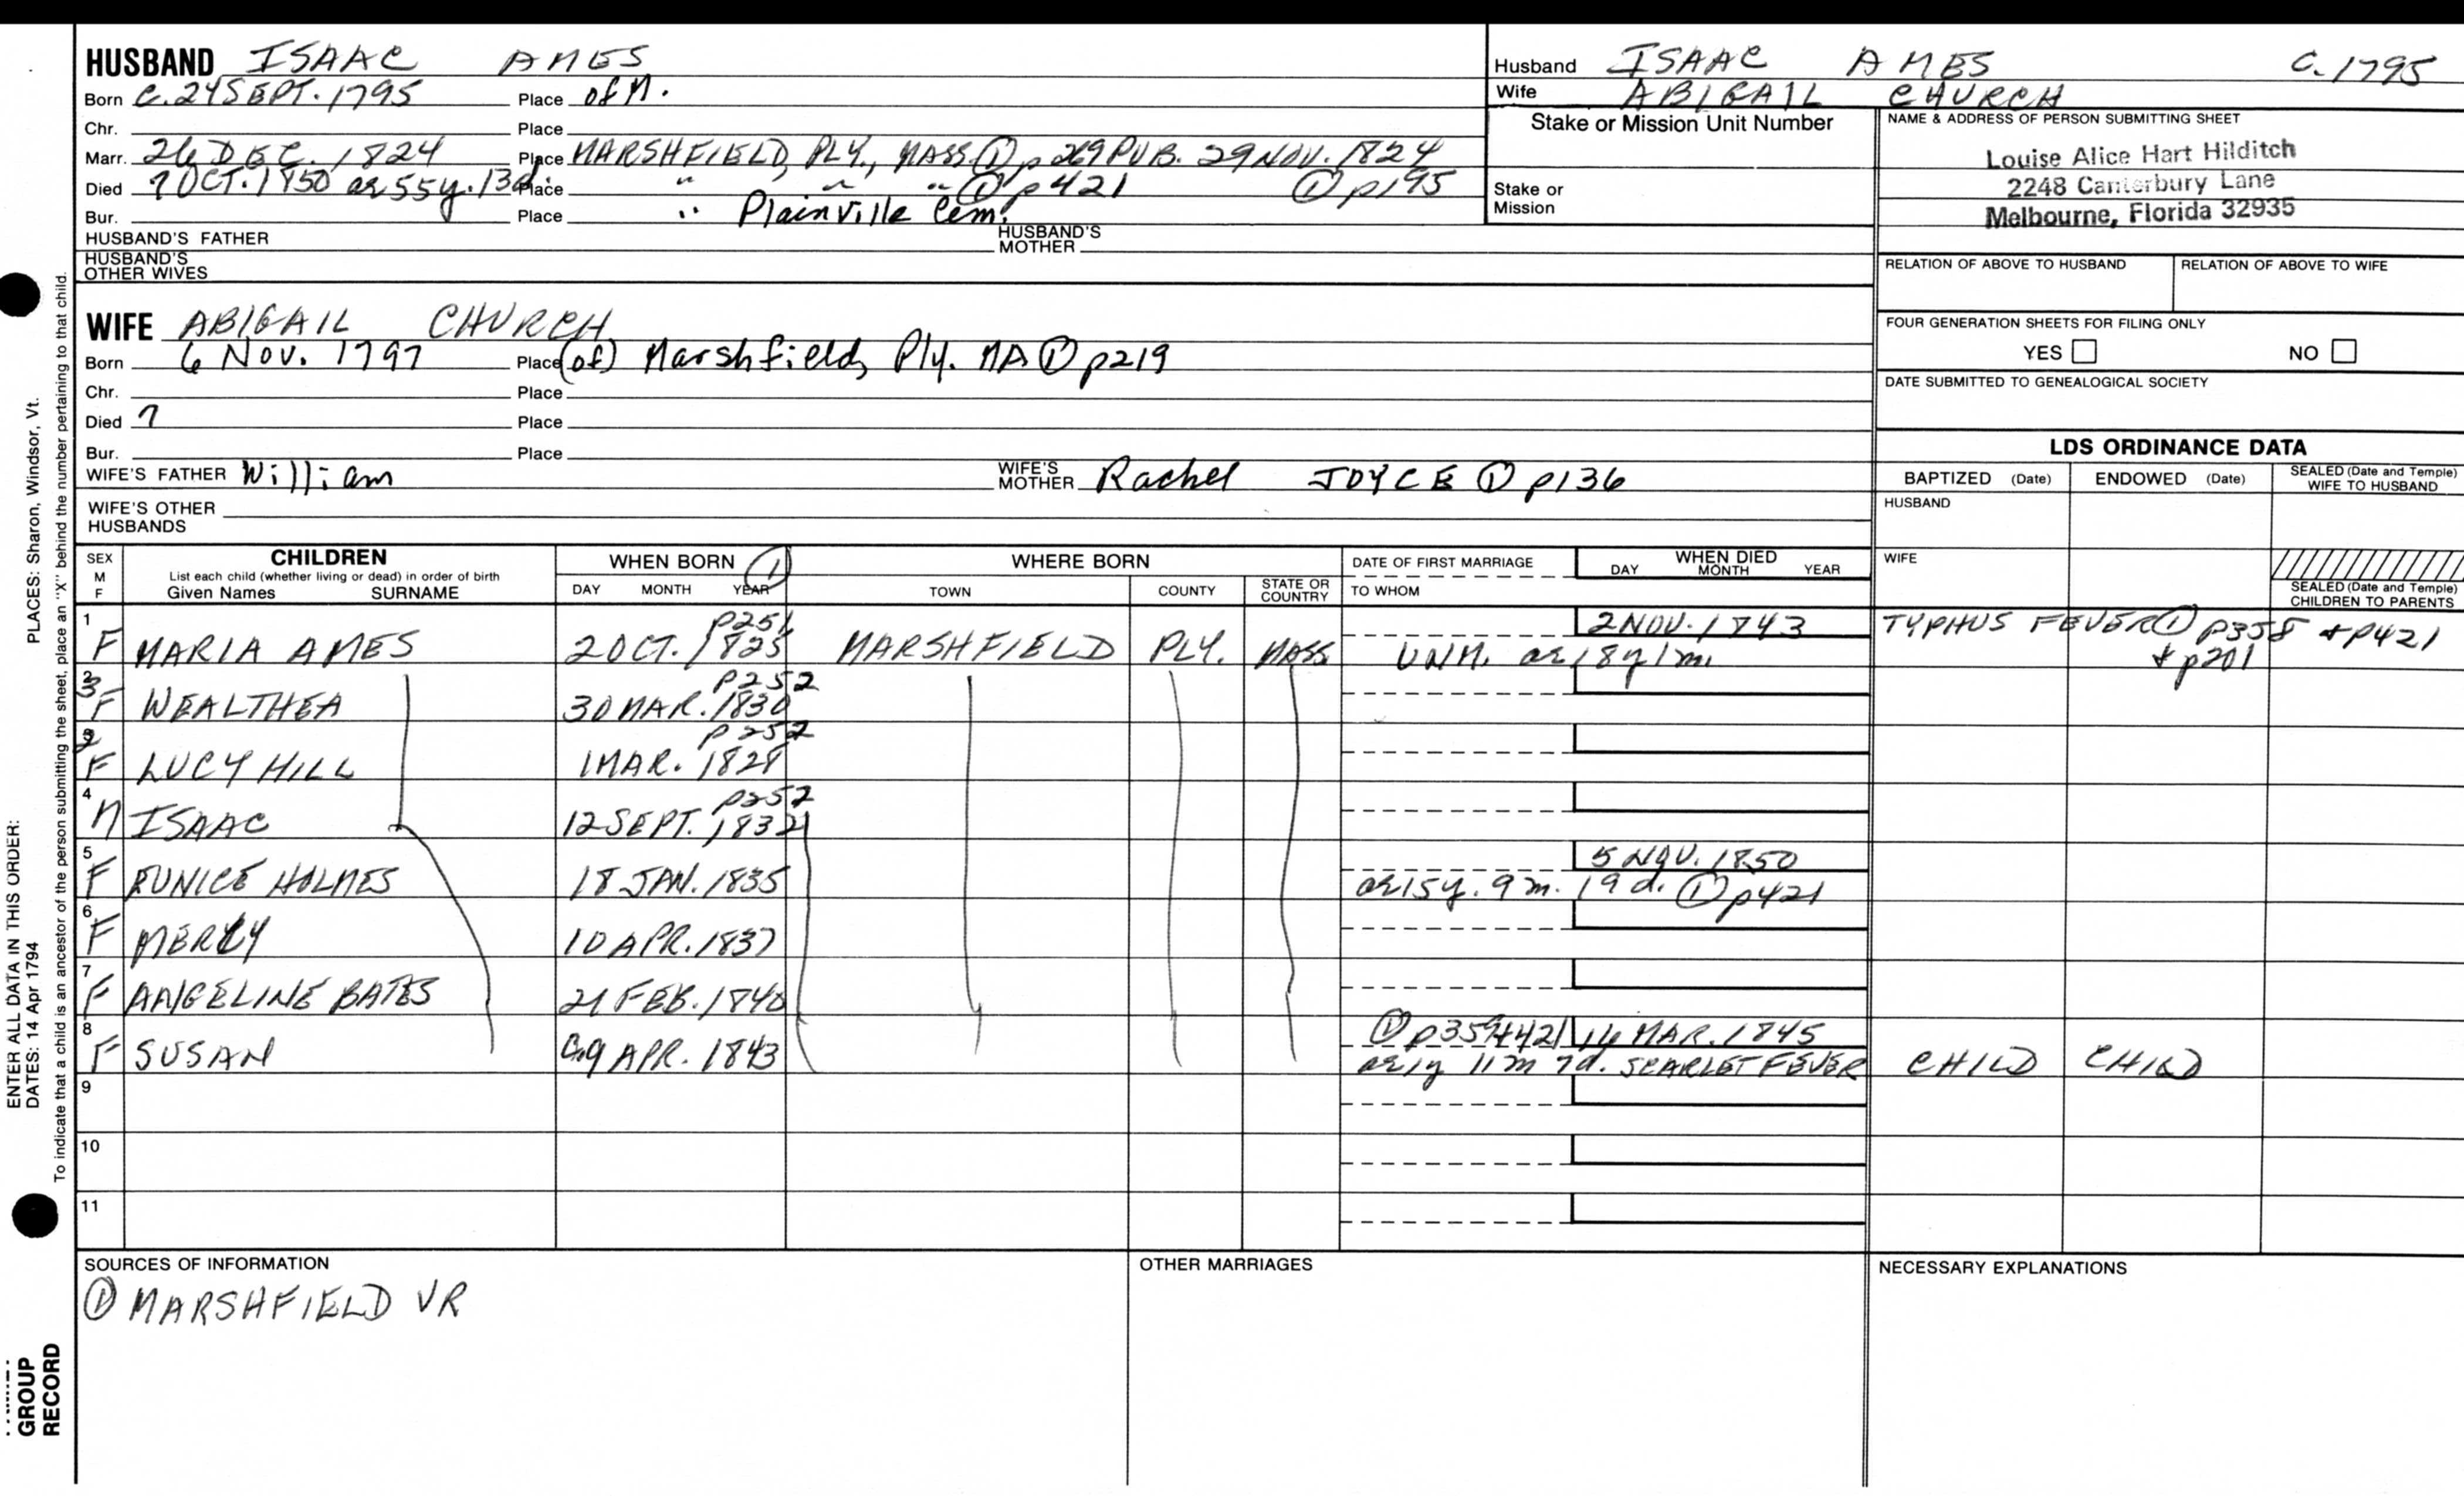 HUSBAND ISAAC AMES
Born C. 24 SEPT. 1795 Place of M.
Chr. Place
Marr. 26 DEC. 1824 Place MARSHFIELD, PLY., MASS. ① p 269 PUB. 29 NOV. 1824
Died 7 OCT. 1850 ae 55y. 13d. Place " " " ① p 421 ① p195
Bur. Place " Plainville Cem.
HUSBAND'S FATHER HUSBAND'S MOTHER
HUSBAND'S OTHER WIVES
WIFE ABIGAIL CHURCH
Born 6 Nov. 1797 Place (of) Marshfield, Ply. MA ① p219
Chr. Place
Died ? Place
Bur. Place
WIFE'S FATHER William WIFE'S MOTHER Rachel JOYCE ① p136
WIFE'S OTHER HUSBANDS
Husband ISAAC AMES C. 1795
Wife ABIGAIL CHURCH
Stake or Mission Unit Number
Stake or Mission
NAME & ADDRESS OF PERSON SUBMITTING SHEET
Louise Alice Hart Hilditch
2248 Canterbury Lane
Melbourne, Florida 32935
RELATION OF ABOVE TO HUSBAND RELATION OF ABOVE TO WIFE
FOUR GENERATION SHEETS FOR FILING ONLY
YES NO
DATE SUBMITTED TO GENEALOGICAL SOCIETY
LDS ORDINANCE DATA
BAPTIZED (Date) ENDOWED (Date) SEALED (Date and Temple) WIFE TO HUSBAND
HUSBAND
WIFE
SEALED (Date and Temple) CHILDREN TO PARENTS
SEX M F
CHILDREN
List each child (whether living or dead) in order of birth
Given Names SURNAME
WHEN BORN ①
DAY MONTH YEAR
WHERE BORN
TOWN COUNTY STATE OR COUNTRY
DATE OF FIRST MARRIAGE
TO WHOM
WHEN DIED
DAY MONTH YEAR
1 p251 2 NOV. 1843 TYPHUS FEVER ① p358 + p421
F MARIA AMES 2 OCT. 1825 MARSHFIELD PLY. MASS UNM. ae 18y 1m. + p201
2 3 p252
F WEALTHEA 30 MAR. 1830
3 2 p252
F LUCY HILL 1 MAR. 1828
4 p252
M ISAAC 12 SEPT. 1832
5 5 NOV. 1850
F EUNICE HOLMES 18 JAN. 1835 ae 15y. 9m. 19d. ① p421
6
F MERCY 10 APR. 1837
7
F ANGELINE BATES 21 FEB. 1840
8 ① p359+421 16 MAR. 1845
F SUSAN C. 9 APR. 1843 ae 1y 11m 7d. SCARLET FEVER CHILD CHILD
9
10
11
SOURCES OF INFORMATION
① MARSHFIELD VR
OTHER MARRIAGES
NECESSARY EXPLANATIONS
ENTER ALL DATA IN THIS ORDER:
DATES: 14 Apr 1794 PLACES: Sharon, Windsor, Vt.
To indicate that a child is an ancestor of the person submitting the sheet, place an "X" behind the number pertaining to that child.
GROUP
RECORD